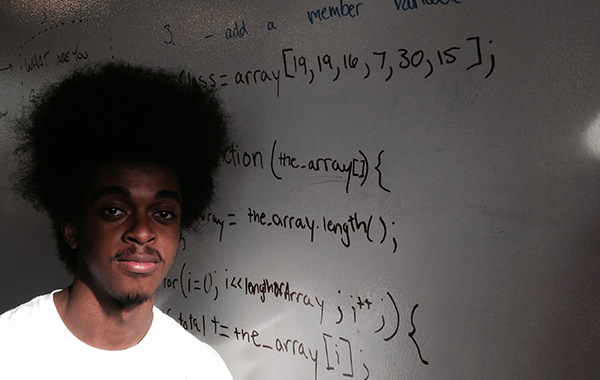 3. - add a member variable
WHAT ARE YOU
class = array[19,19,16,7,30,15];
ction (the_array[]){
ray = the_array.length();
for(i=0; i<<lengthofArray ; i++ ;){
total += the_array[i];